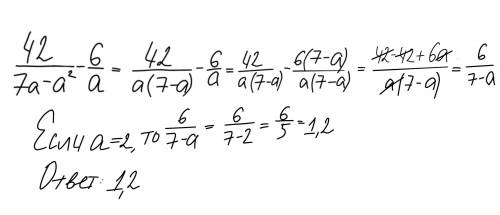 42/(7a-a²) - 6/a = 42/(a(7-a)) - 6/a = 42/(a(7-a)) - 6(7-a)/(a(7-a)) = (42-42+6a)/(a(7-a)) = 6/(7-a)
Если a=2, то 6/(7-a) = 6/(7-2) = 6/5 = 1,2
Ответ: 1,2